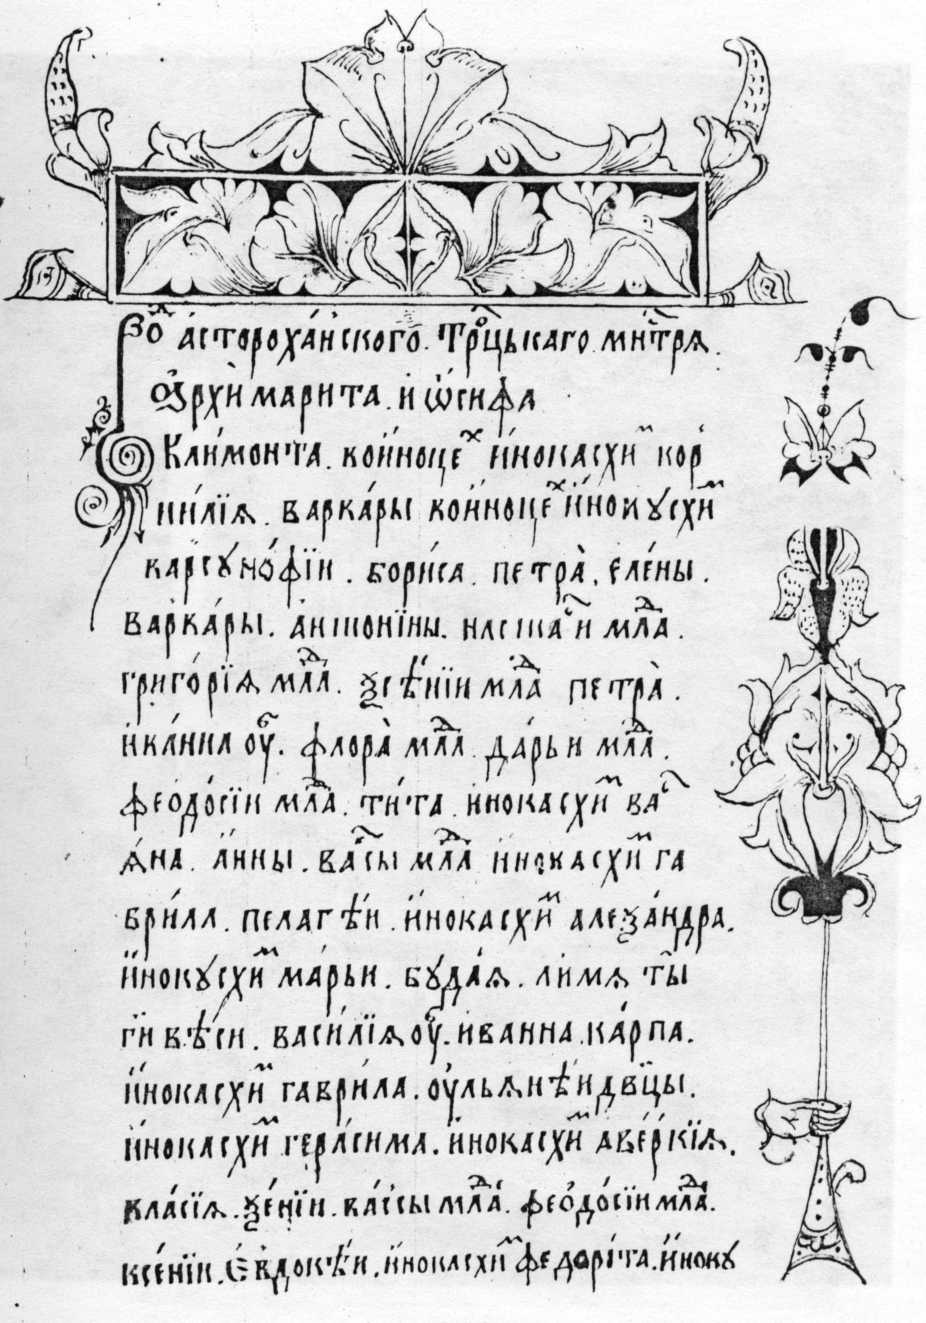 асторохан̾ского. Трⷪцькаго
архимарита. и ѡсифа
Климонта. инокасхиⷨ кор
нилїя. варвары иноцеⷯ инокусхиⷨ
бориса. петра. елены.
варвары. антонїны. и млⷣа.
григорїя млⷣа. ѯенїи млⷣа петра.
флора млⷣа. дарьи млⷣа.
феодосїи млⷣа. тита. инокасхиⷨ ваⷭ
яна. анны. ваⷭсы млⷣа инокасхиⷨ га
врила. пелагѣи. инокасхиⷨ алеѯандра.
инокусхиⷨ марьи.
василїя иванна карпа.
инокасхиⷨ гаврила. ульянѣи двцы.
инокасхиⷨ герасима. инокасхиⷨ аверкїя.
власїя. ѯенїи. вассы млⷣа. феодосїи млⷣа.
ксенїи. Евдокѣи. инокасхиⷨ федорита. иноку